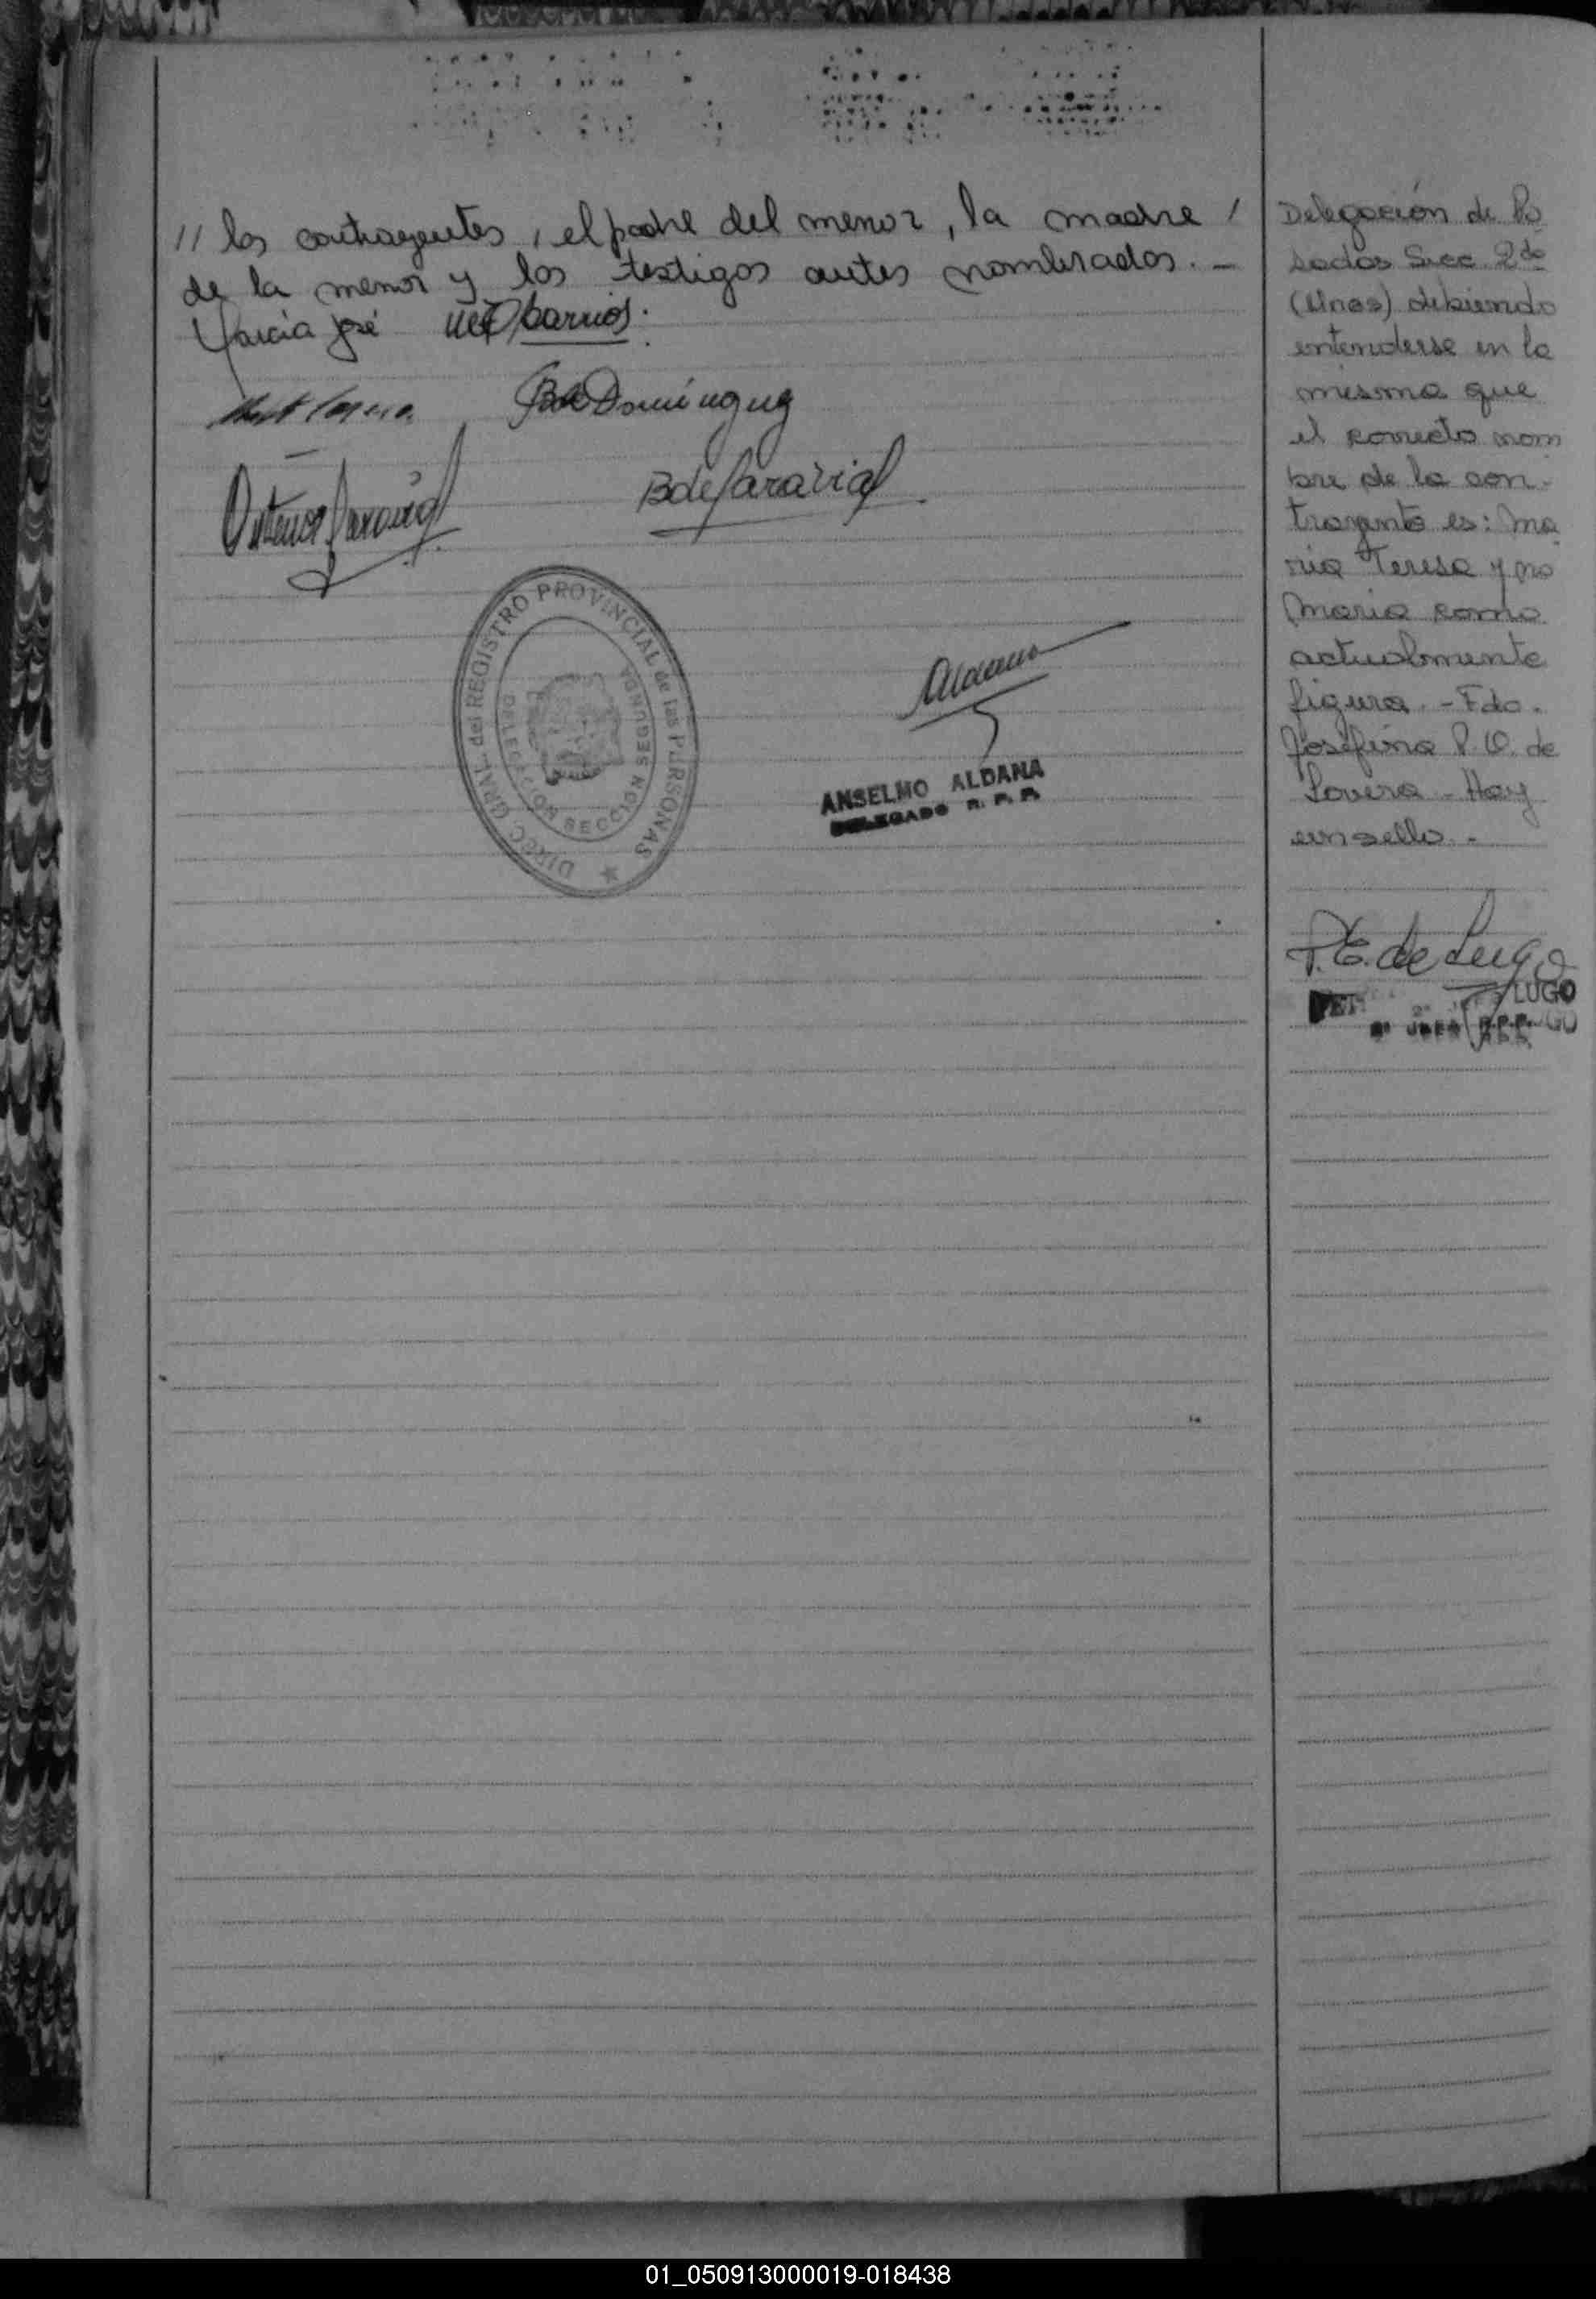 // los contrayentes, el padre del menor, la madre /
de la menor y los testigos antes nombrados. -
García José Barrios.
B de Domínguez
B de Saravia
DIREC. GRAL. del REGISTRO PROVINCIAL de las PERSONAS
DELEGACION SECCION SEGUNDA
Aldana
ANSELMO ALDANA
DELEGADO R. P. P.
Delegación de Po
sadas Secc 2da
(Mnes) debiendo
entenderse en la
misma que
el correcto nom
bre de la con-
trayente es: Ma
ría Teresa y no
María como
actualmente
figura. - Fdo.
Josefina P. O. de
Lovera - Hay
un sello. -
P.E. de Lugo
LUGO
2º JEFE R.P.P.
01_050913000019-018438